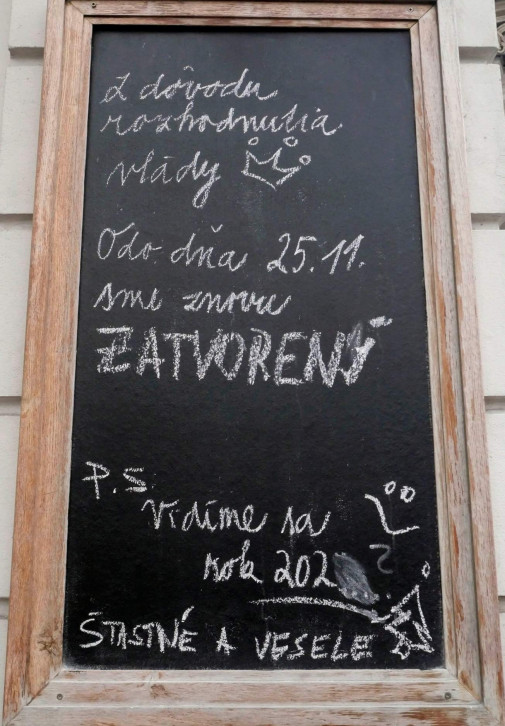 Z dôvodu
rozhodnutia
vlády
Odo dňa 25.11.
sme znovu
ZATVORENÝ
P.S
Vidíme sa
rok 202 ?
ŠTASTNÉ A VESELE